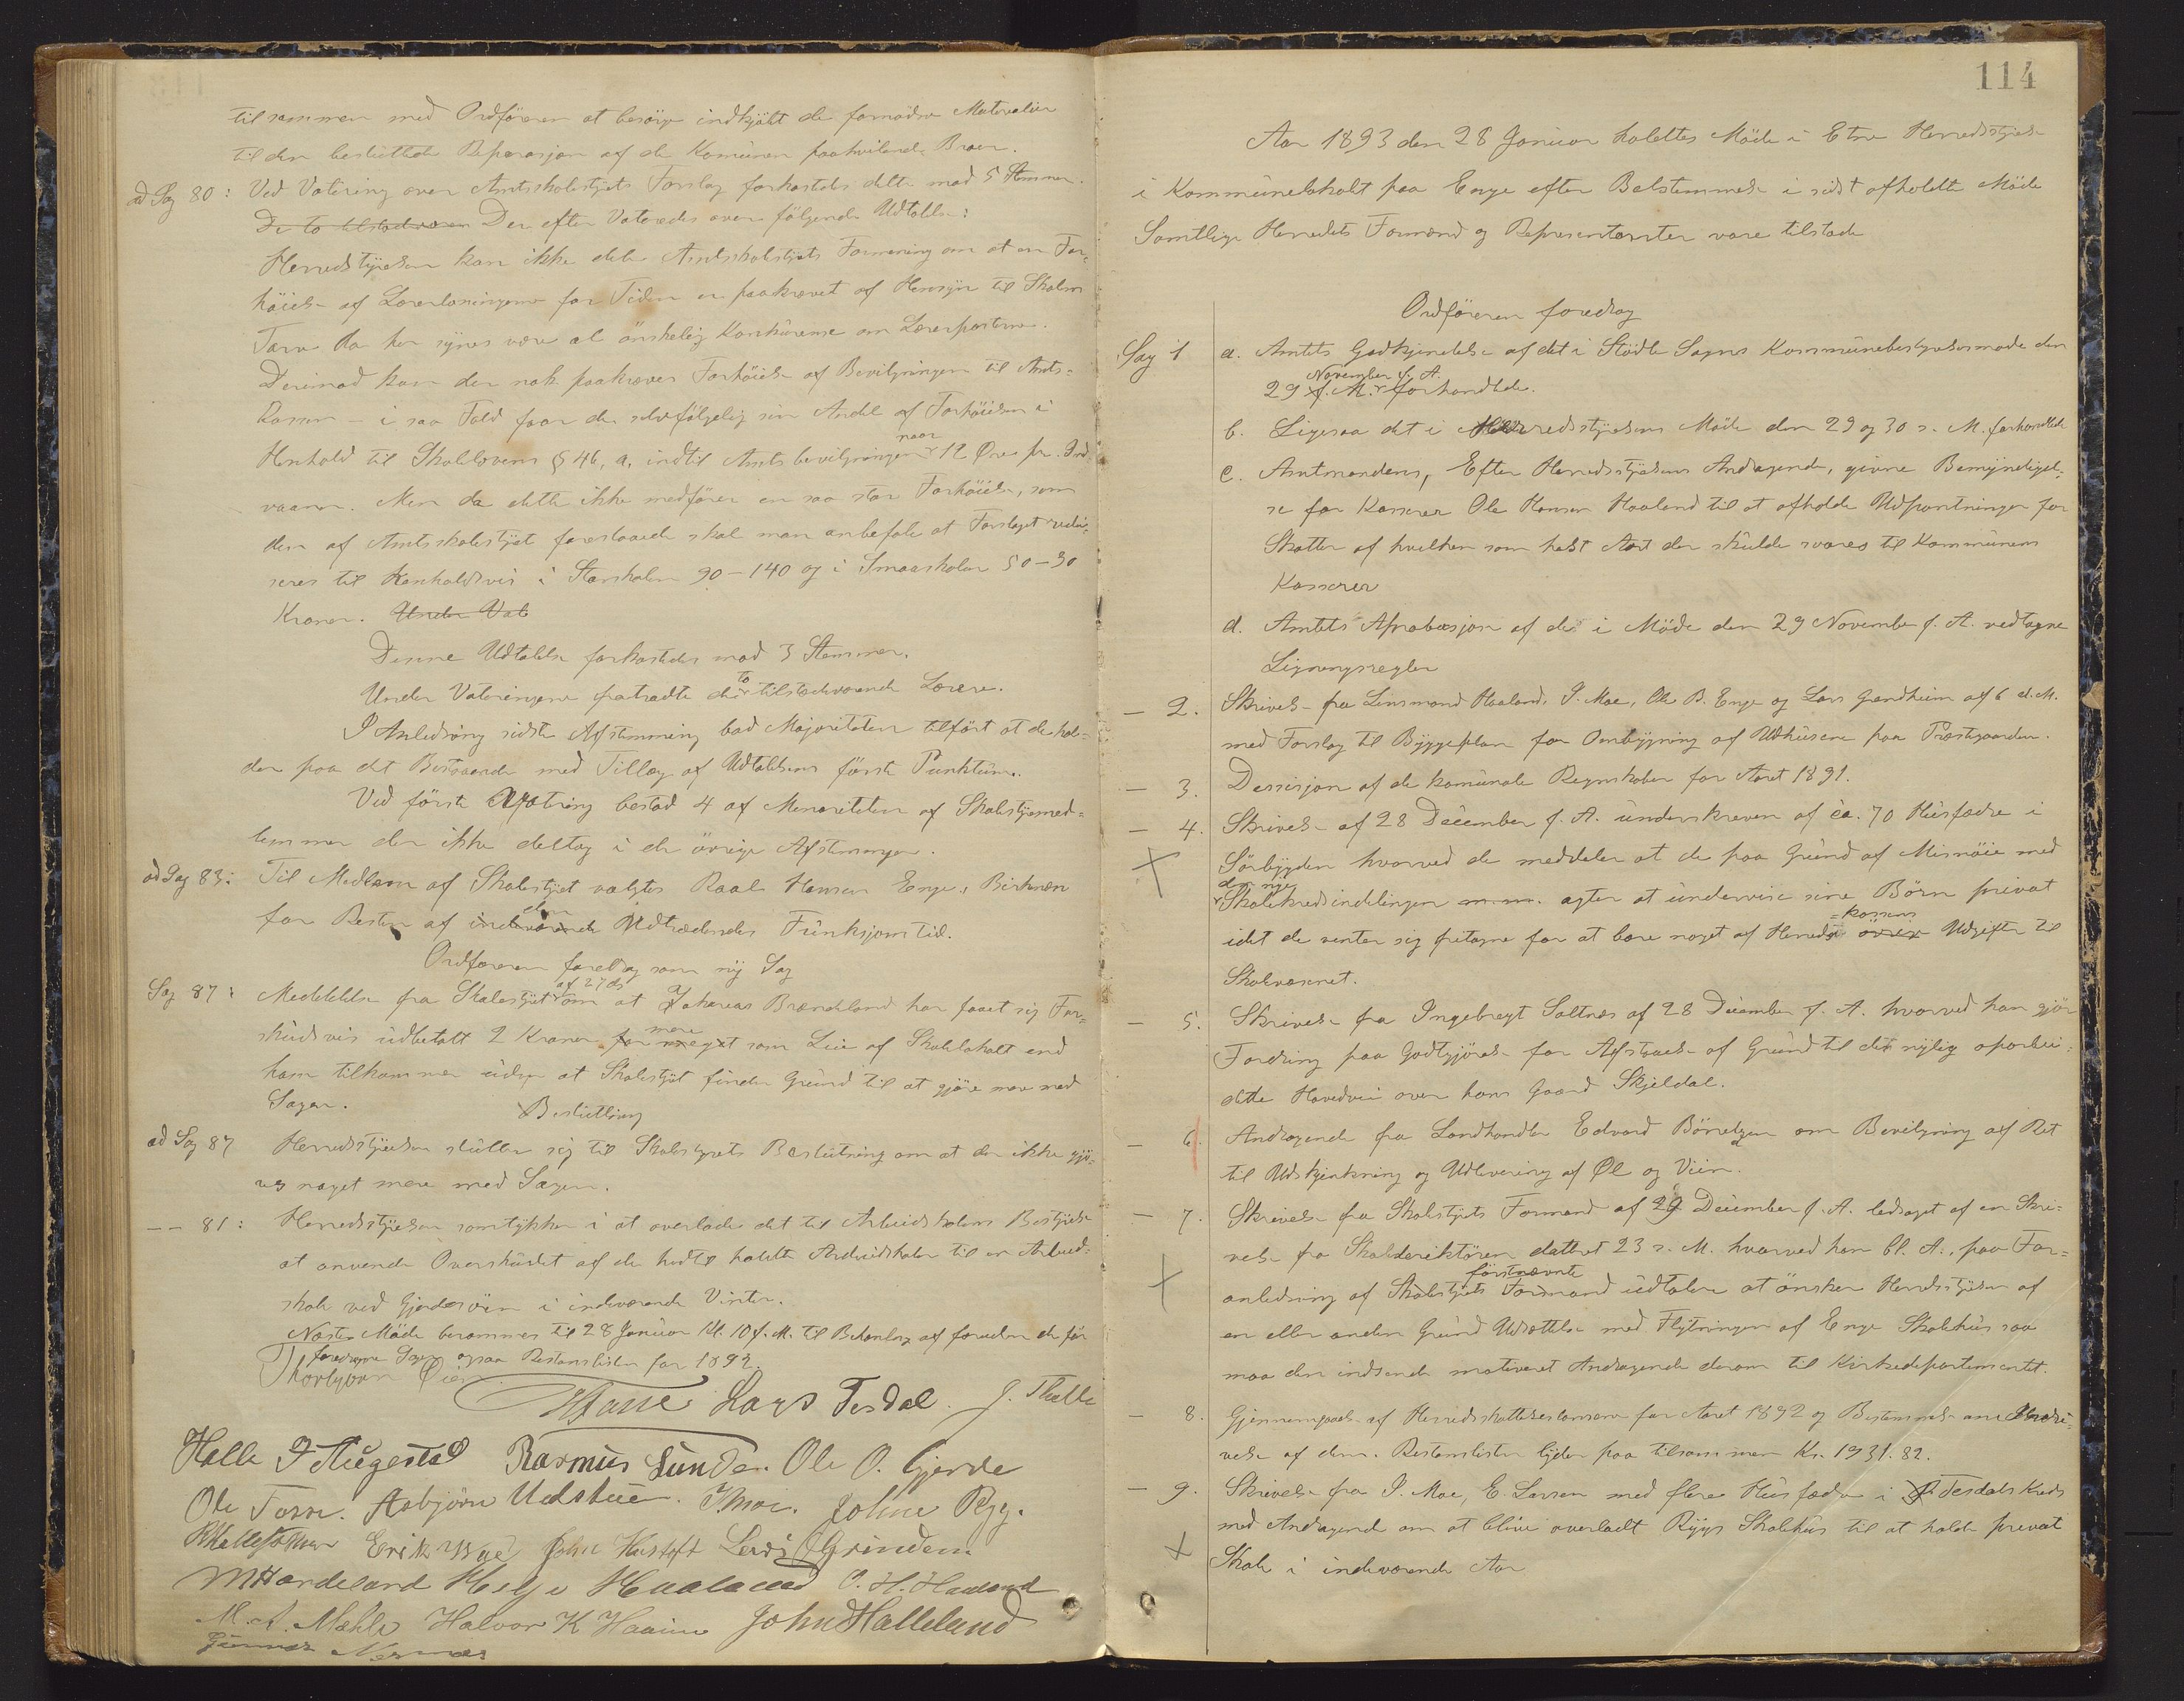 til sammen med Ordföreren at besörge indkjöbt de fornödne Materialier
til den besluttede Reparasjon af de Komunen paahvilende Broer.
ad Sag 80: Ved Votering over Amtsskolestyrets Forslag forkastedes dette mod 5 Stemmer.
De to tilstedværen Der efter Voteredes over følgende Udtalelse:
Herredstyrelsen kan ikke dele Amtsskolestyrets Formening om at en For-
höielse af Lærerlønningerne for Tiden er paakrævet af Hensyn til Skolens
Tarv da her synes være al önskelig Konkurense om Lærerposterne.
Derimod kan der nok paakræves Forhöielse af Bevilgningen til Amts-
kassen – i saa Fald faar de selvfölgelig sin Andel af Forhöielsen i
Henhold til Skolelovens § 46, a, indtil Amtsbevilgningen naar 12 Öre pr. Ind
vaaner. Men da dette ikke medförer en saa stor Forhöielse, som
den af Amtsskolestyret foreslaaede skal man anbefale at Forslaget redu-
seres til henholdsvis i Storskolen 90–140 og i Smaaskolen 50–90
Kroner. Under Vot
Denne Udtalelse forkastedes mod 3 Stemmer.
Under Voteringerne fratraadte de to tilstedeværende Lærere.
I Anledning sidste Afstemning bad Majoriteten tilfört at de hol-
der paa det Bestaaende med Tillæg af Udtalelsens förste Punktum.
Ved förste Votring bestod 4 af Minoriteten af Skolestyremed-
lemmer der ikke deltog i de övrige Afstemninger.
ad Sag 83: Til Medlem af Skolestyret valgtes Raal Hansen Enge, Birkenæs
for Resten af indeværende den Udtrædendes Funksjonstid.
Ordføreren foredrog som ny Sag
Sag 87: Meddelelse fra Skolestyret af 27 ds om at Zakarias Brændeland har faaet sig For-
skudsvis udbetalt 2 Kroner for meget mere som Leie af Skolelokalt end
ham tilkommer uden at Skolestyret finder Grund til at gjöre mere med
Sagen.
Beslutting
ad Sag 87 Herredstyrelsen slutter sig til Skolestyrets Beslutning om at der ikke gjö-
res noget mere med Sagen.
– – 81: Herredstyrelsen samtykker i at overlade det til Arbeidskolens Bestyrelse
at anvende Overskudet af de hertil holdte Arbeidskoler til en Arbeid-
skole ved Gjerdesöien i indeværende Vinter.
Næste Möde berammes til 28 Januar Kl. 10 f. M. til Behandling af foruden de för
foredragne Sager ogsaa Restanslisten for 1892.
Thorbjørn Øien
Lars Tesdal. J. Thalle
Halle J Augestad Rasmus Sunde. Ole O. Gjerde
Ole Fosse. Asbjörn Udstuen. I Moe. Johne Ryg.
Erik Bye John Hustoft Lars O Grindem
M Hardeland Helge Haaland O. H. Haaland
M. A. Mæhle Halvor K Haaime John Halleland
Gunnar Nernæs
114
Aar 1893 den 28 Januar holdtes Möde i Etne Herredsstyrelse
i Kommunelokalt paa Enge efter Bestemmelse i sidst afholdte Möde
Samtlige Herredets Formænd og Representanter vare tilstede
Ordföreren foredrog
Sag 1 a. Amtets Godkjendelse af det i Stödle Sogns Kommunebestyrelsesmöde den
29 f. M. November f. A. forhandlede.
b. Ligesaa det i Herredsstyrelsens Möde den 29 og 30 s. M. forhandlede
c. Amtmandens, Efter Herredsstyrelsens Andragende, givne Bemyndigel-
se for Kasserer Ole Hansen Haaland til at afholde Udpantninger for
Skatter af hvilken som helst Art der skulde svares til Kommunens
Kasserer
d. Amtets Aprobasjon af de i Möde den 29 November f. A. vedtagne
Ligningsregler
– 2. Skrivelse fra Lensmand Haaland, I. Moe, Ole B. Enge og Lars Grandheim af 6 d. M.
med Forslag til Byggeplan for Ombygning af Udhusene paa Præstegaarden.
– 3. Dessisjon af de komunale Regnskaber for Aaret 1891.
– 4. Skrivelse af 28 December f. A. underskreven af ca. 70 Husfædre i
Sörbygden hvorved de meddeler at de paa Grund af Misnöie med
den nye Skolekredsindelingen m.m. agter at undervise sine Börn privat
idet de venter sig fritagne for at bære noget af Herreds-kassens Udgifter til
Skolevæsenet.
– 5. Skrivelse fra Ingebregt Saltnes af 28 December f. A. hvorved han gjör
Fordring paa Godtgjörelse for Afstaaelse af Grund til det nylig oparbei-
dette Hovedvei over hans Gaard Skjeldal.
– 6. Andragende fra Landhandler Edvard Börretzen om Bevilgning af Ret
til Udskjænkning og Udlevering af Øl og Viin.
– 7. Skrivelse fra Skolestyrets Formand af 29 December f. A. ledsaget af en Skri-
velse fra Skoledirektören datteret 23 s. M. hvorved han bl. A., paa For-
anledning af Skolestyrets förstnævnte Formand udtaler at önsker Herredsstyrelsen af
en eller anden Grund Udsættelse med Flytningen af Enge Skolehus saa
maa den indsende motiveret Andragende derom til Kirkedepartementet.
– 8. Gjennemgaaelse af Herredsskatterestansene for Aaret 1892 og Bestemmelse om Inddri-
velse af dem. Restanslisten lyder paa tilsammen Kr. 1931.82.
– 9. Skrivelse fra I. Moe, E. Larsen med flere Husfædre i Tesdals Kreds
med Andragende om at blive overladt Rygs Skolehus til at holde prevat
Skole i indeværende Aar